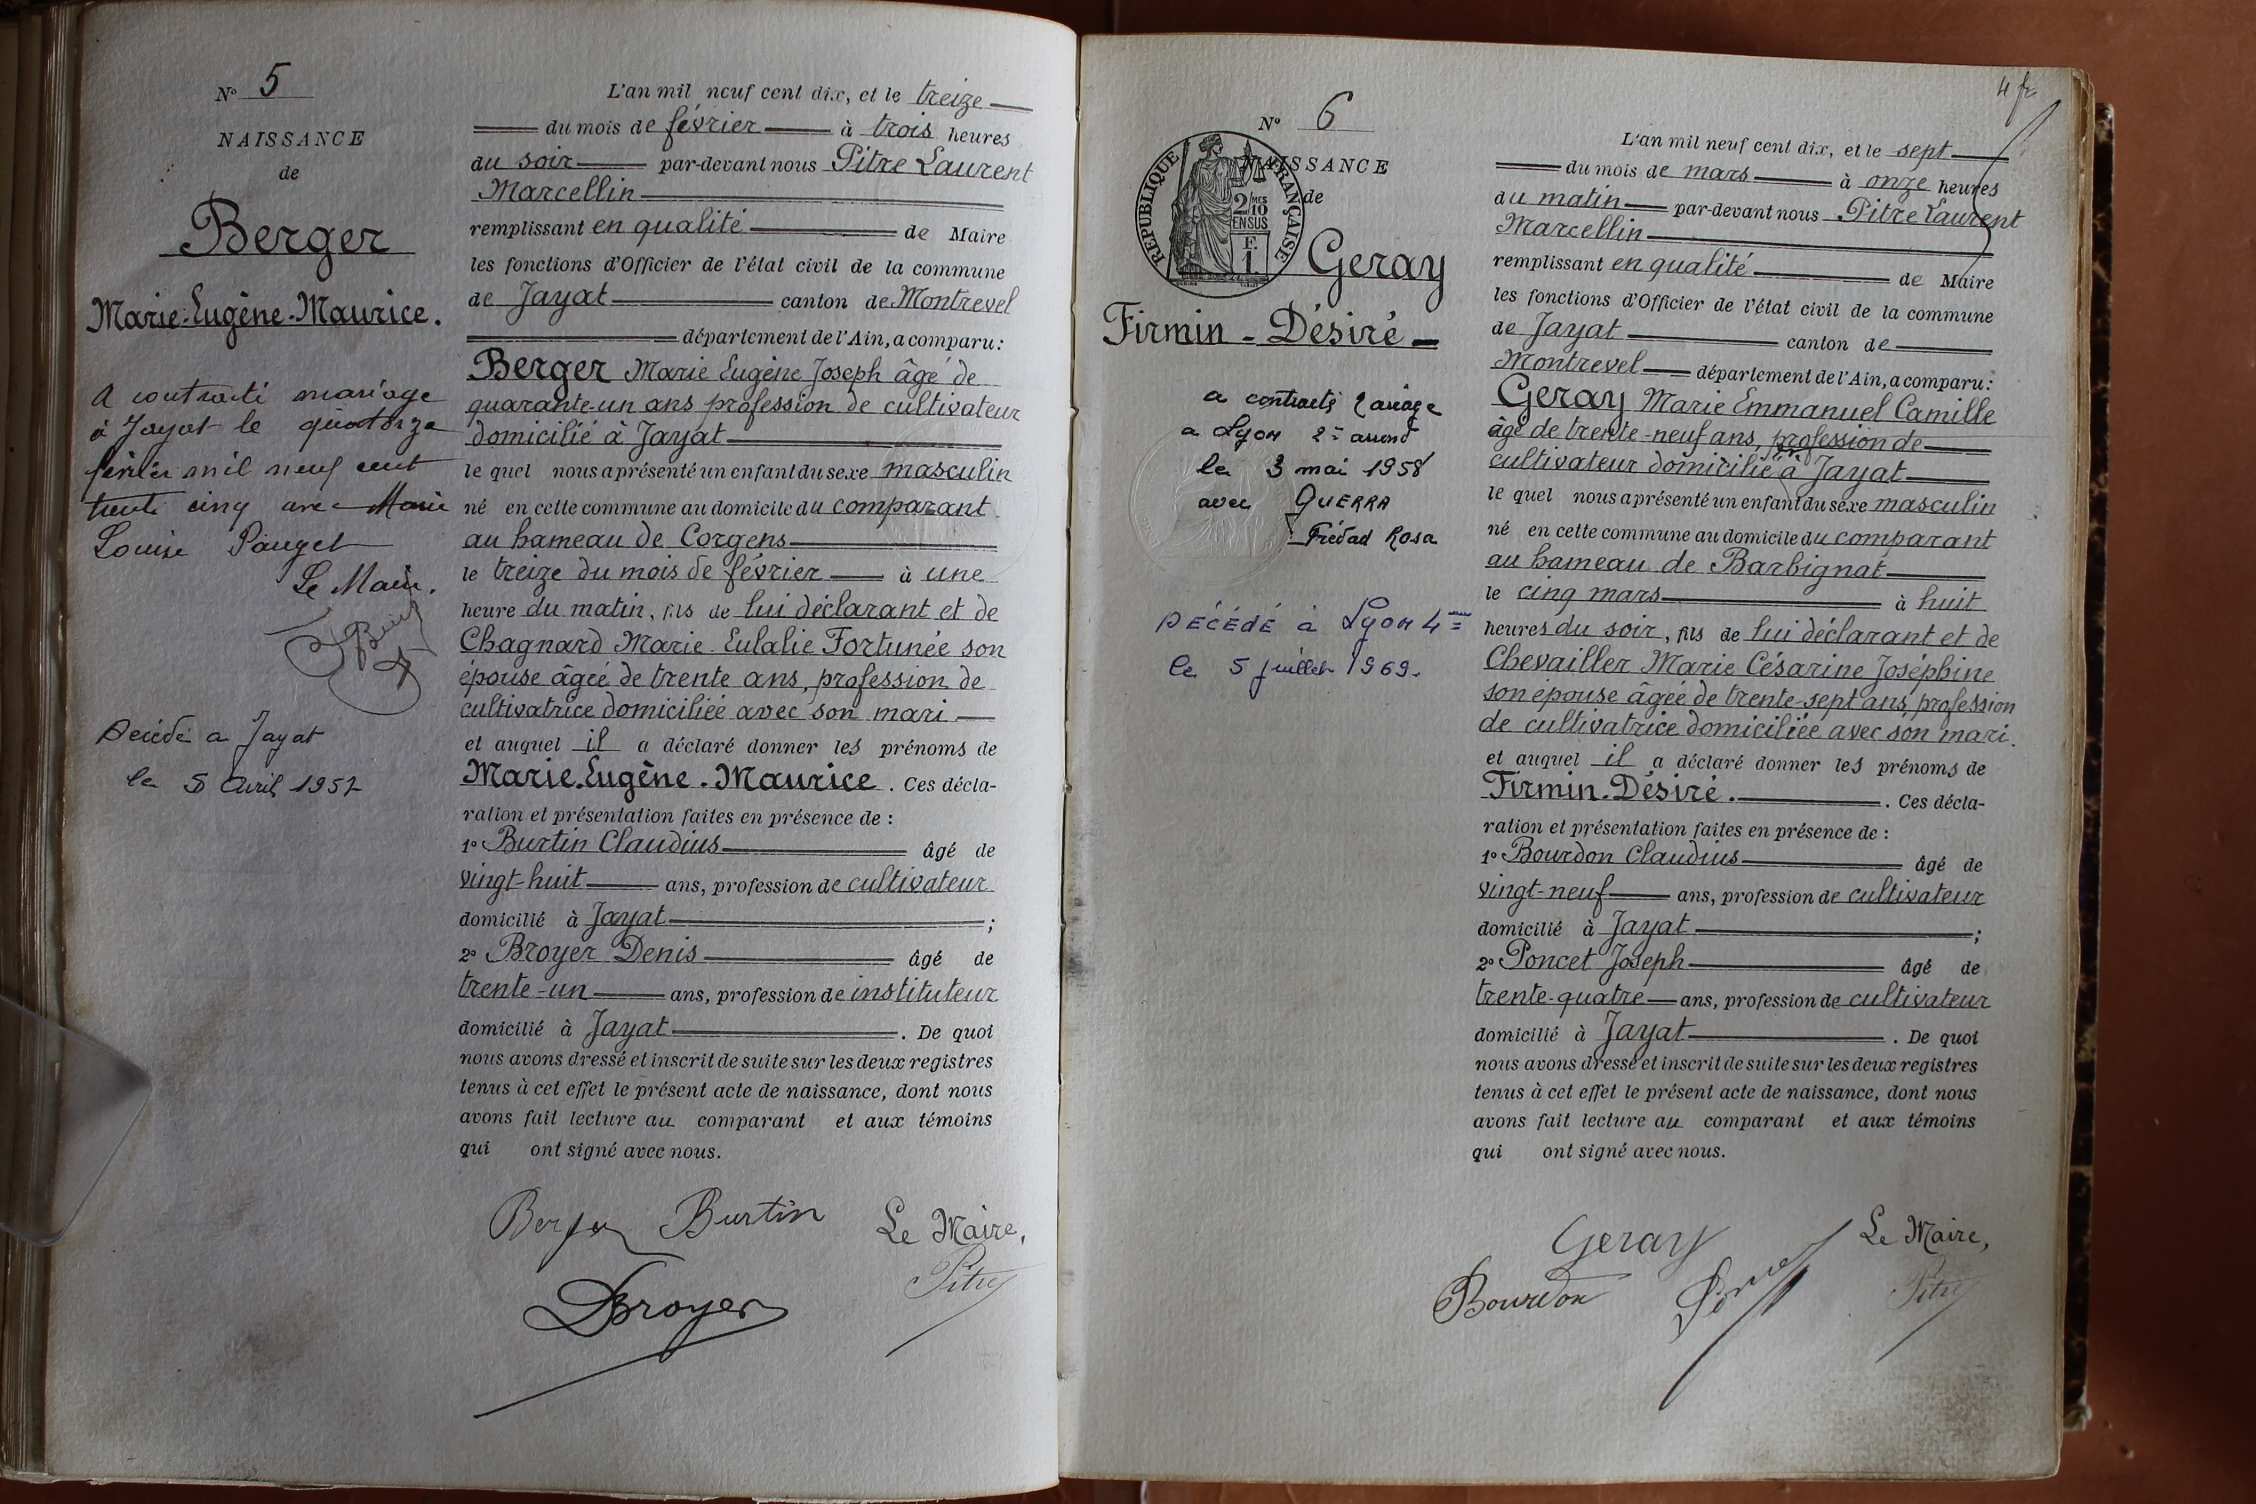 N° 5
NAISSANCE
de
Berger
Marie-Eugène-Maurice.
A contracté mariage
à Jayat le quatorze
février mil neuf cent
trente cinq avec Marie
Louise Pauget
Le Maire.
Décédé a Jayat
le 5 Avril 1957
L'an mil neuf cent dix, et le treize
du mois de février à trois heures
du soir par-devant nous Pitre Laurent
Marcellin
remplissant en qualité de Maire
les fonctions d'Officier de l'état civil de la commune
de Jayat canton de Montrevel
département de l'Ain, a comparu:
Berger Marie Eugène Joseph âgé de
quarante-un ans profession de cultivateur
domicilié à Jayat
le quel nous a présenté un enfant du sexe masculin
né en cette commune au domicile du comparant
au hameau de Corgens
le treize du mois de février à une
heure du matin, fils de lui déclarant et de
Chagnard Marie Eulalie Fortunée son
épouse âgée de trente ans, profession de
cultivatrice domiciliée avec son mari
et auquel il a déclaré donner les prénoms de
Marie-Eugène-Maurice. Ces décla-
ration et présentation faites en présence de :
1° Burtin Claudius âgé de
vingt-huit ans, profession de cultivateur
domicilié à Jayat ;
2° Broyer Denis âgé de
trente-un ans, profession de instituteur
domicilié à Jayat . De quoi
nous avons dressé et inscrit de suite sur les deux registres
tenus à cet effet le présent acte de naissance, dont nous
avons fait lecture au comparant et aux témoins
qui ont signé avec nous.
Berger Burtin Le Maire,
Pitre
DBroyer
4 fr
N° 6
NAISSANCE
de
RÉPUBLIQUE FRANÇAISE
2/10 MES
EN SUS
F.
1.
Geray
Firmin-Désiré
a contracté mariage
a Lyon 2e arrond
le 3 mai 1958
avec GUERRA
Piédad Rosa
DÉCÉDÉ à Lyon 4eme
le 5 juillet 1969.
L'an mil neuf cent dix, et le sept
du mois de mars à onze heures
du matin par-devant nous Pitre Laurent
Marcellin
remplissant en qualité de Maire
les fonctions d'Officier de l'état civil de la commune
de Jayat canton de
Montrevel département de l'Ain, a comparu:
Geray Marie Emmanuel Camille
âgé de trente-neuf ans, profession de
cultivateur domicilié à Jayat
le quel nous a présenté un enfant du sexe masculin
né en cette commune au domicile du comparant
au hameau de Barbignat
le cinq mars à huit
heures du soir, fils de lui déclarant et de
Chevailler Marie Césarine Joséphine
son épouse âgée de trente-sept ans, profession
de cultivatrice domiciliée avec son mari.
et auquel il a déclaré donner les prénoms de
Firmin-Désiré. . Ces décla-
ration et présentation faites en présence de :
1° Bourdon Claudius âgé de
vingt-neuf ans, profession de cultivateur
domicilié à Jayat ;
2° Poncet Joseph âgé de
trente-quatre ans, profession de cultivateur
domicilié à Jayat . De quoi
nous avons dressé et inscrit de suite sur les deux registres
tenus à cet effet le présent acte de naissance, dont nous
avons fait lecture au comparant et aux témoins
qui ont signé avec nous.
Geray Le Maire,
Bourdon Pitre